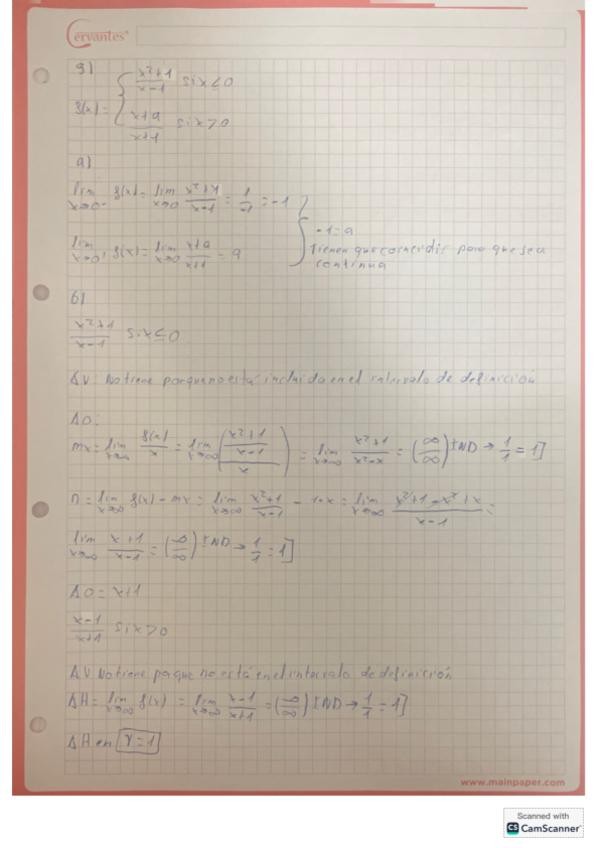 Cervantes
9)
f(x) = { x²+1 / x-1 si x ≤ 0
x+a / x+1 si x > 0
a)
lim x→0⁻ f(x) = lim x→0 x²+1 / x-1 = 1/-1 = -1
-1 = a
Tienen que coincidir para que sea continua
lim x→0⁺ f(x) = lim x→0 x+a / x+1 = a
b)
x²+1 / x-1 si x ≤ 0
AV: No tiene porque no está incluida en el intervalo de definición
AO:
mx = lim x→∞ f(x)/x = lim x→∞ ((x²+1 / x-1) / x) = lim x→∞ x²+1 / x²-x = (∞/∞) IND → 1/1 = 1]
n = lim x→∞ f(x) - mx = lim x→∞ x²+1 / x-1 - 1·x = lim x→∞ x²+1-x²+x / x-1 =
lim x→∞ x+1 / x-1 = (∞/∞) IND → 1/1 = 1]
AO = x+1
x-1 / x+1 si x > 0
AV No tiene porque no está en el intervalo de definición
AH = lim x→∞ f(x) = lim x→∞ x-1 / x+1 = (∞/∞) IND → 1/1 = 1]
AH en y = 1
www.mainpaper.com
Scanned with
CS CamScanner